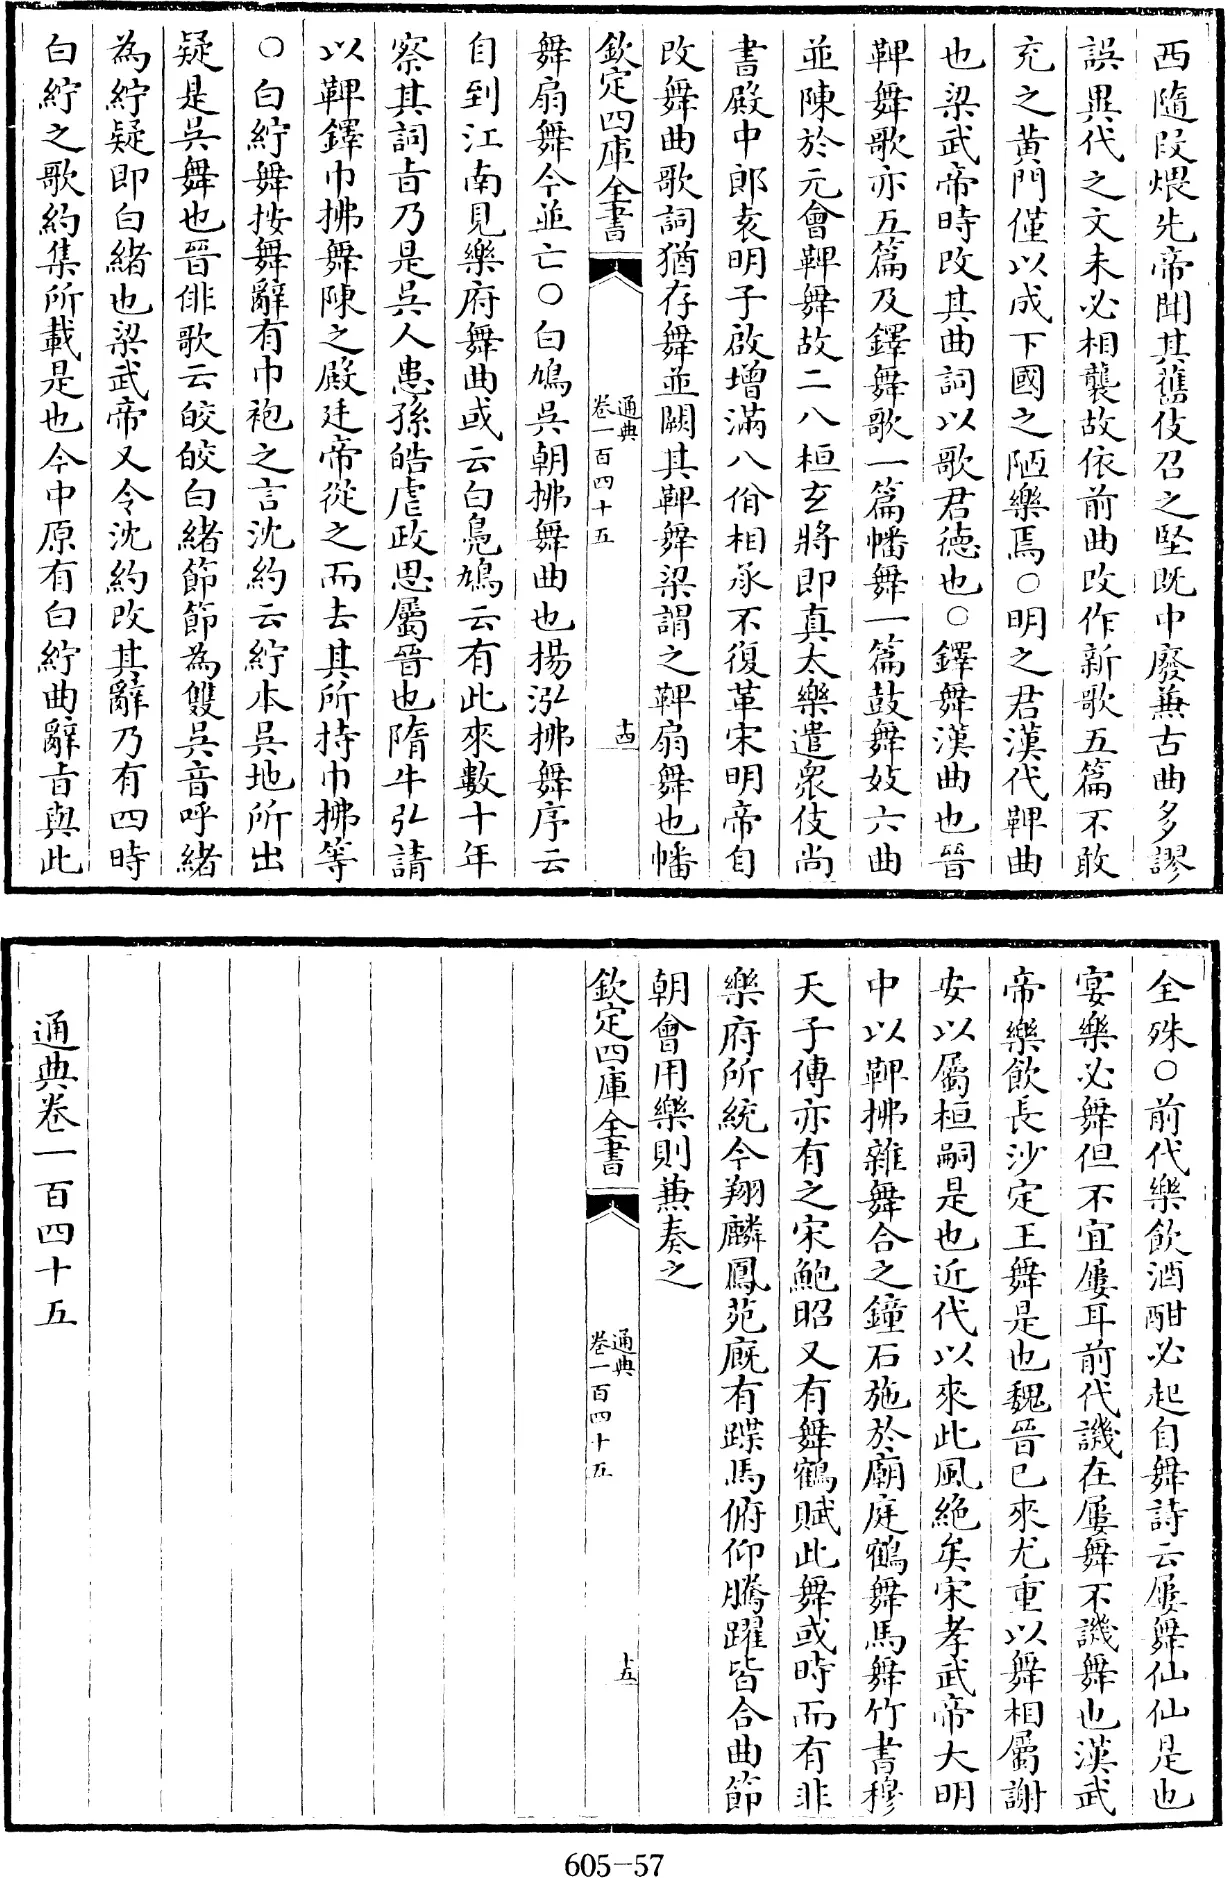 西隨段煨先帝聞其舊伎召之堅既中廢蕪古曲多謬
誤異代之文未必相襲故依前曲改作新歌五篇不敢
充之黄門僅以成下國之陋樂焉○明之君漢代鞞曲
也梁武帝時改其曲詞以歌君徳也○鐸舞漢曲也晉
鞞舞歌亦五篇及鐸舞歌一篇幡舞一篇鼓舞妓六曲
並陳於元會鞞舞故二八桓玄將即真太樂遣衆伎尚
書殿中郎袁明子啟增滿八佾相承不復革宋明帝自
改舞曲歌詞猶存舞並闕其鞞舞梁謂之鞞扇舞也幡
欽定四庫全書
通典
卷一百四十五
十四
舞扇舞今並亡○白鳩吳朝拂舞曲也揚泓拂舞序云
自到江南見樂府舞曲或云白鳧鳩云有此來數十年
察其詞㫖乃是吳人患孫皓虐政思屬晉也隋牛弘請
以鞞鐸巾拂舞陳之殿廷帝從之而去其所持巾拂等
○白紵舞按舞辭有巾袍之言沈約云紵本吳地所出
疑是吳舞也晉俳歌云皎皎白緒節節為雙吳音呼緒
為紵疑即白緒也梁武帝又令沈約改其辭乃有四時
白紵之歌約集所載是也今中原有白紵曲辭㫖與此
全殊○前代樂飲酒酣必起自舞詩云屢舞仙仙是也
宴樂必舞但不宜屢耳前代譏在屢舞不譏舞也漢武
帝樂飲長沙定王舞是也魏晉已來尤重以舞相屬謝
安以屬桓嗣是也近代以來此風絶矣宋孝武帝大明
中以鞞拂雜舞合之鐘石施於廟庭鶴舞馬舞竹書穆
天子傳亦有之宋鮑昭又有舞鶴賦此舞或時而有非
樂府所統今翔麟鳳苑廐有蹀馬俯仰騰躍皆合曲節
朝會用樂則蕪奏之
欽定四庫全書
通典
卷一百四十五
十五
通典卷一百四十五
605-57